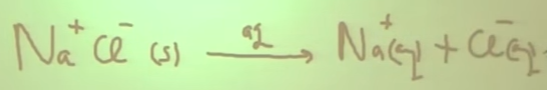 Na⁺Cl⁻ (s) —aq→ Na⁺(aq) + Cl⁻(aq)